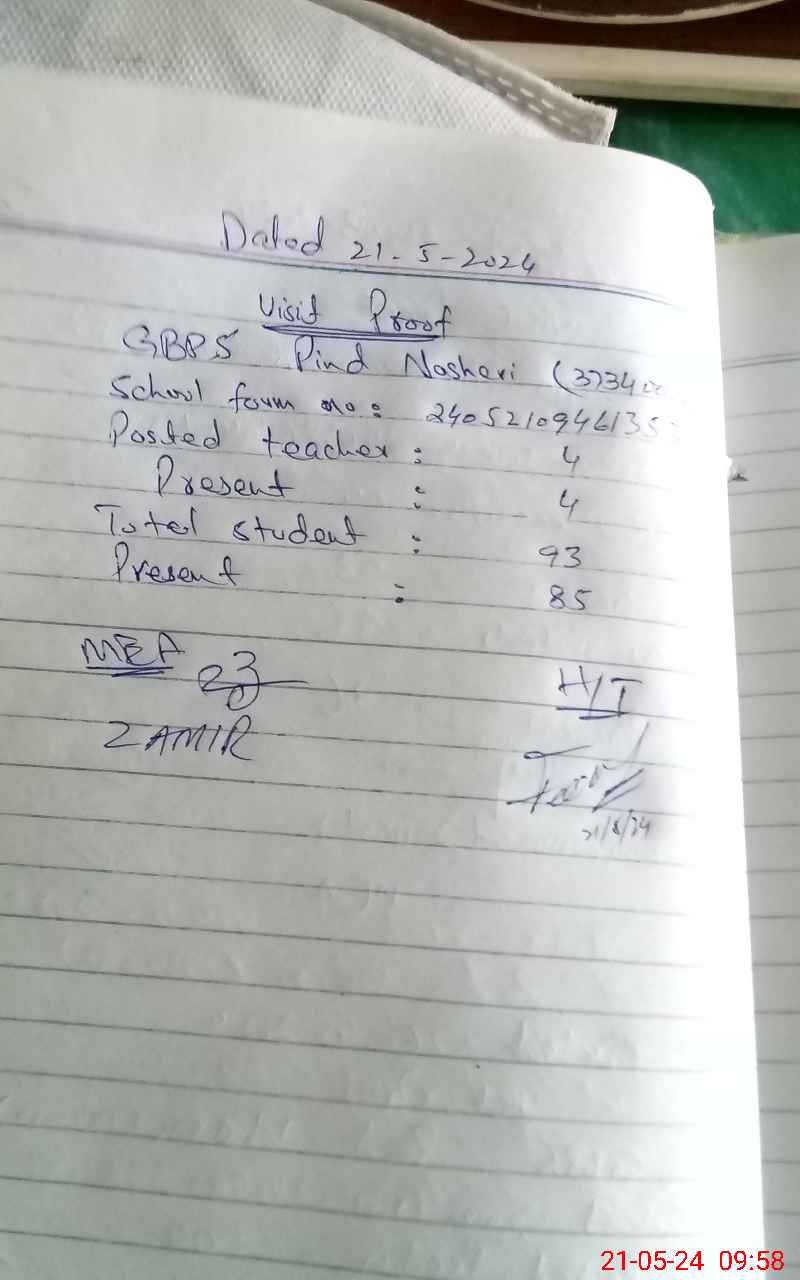 Dated 21-5-2024
Visit Proof
GBPS Pind Nosheri (37340
School form no: 2405210946135
Posted teacher : 4
Present : 4
Total student : 93
Present : 85
MEA H/T
ZAMIR
21/5/24
21-05-24 09:58